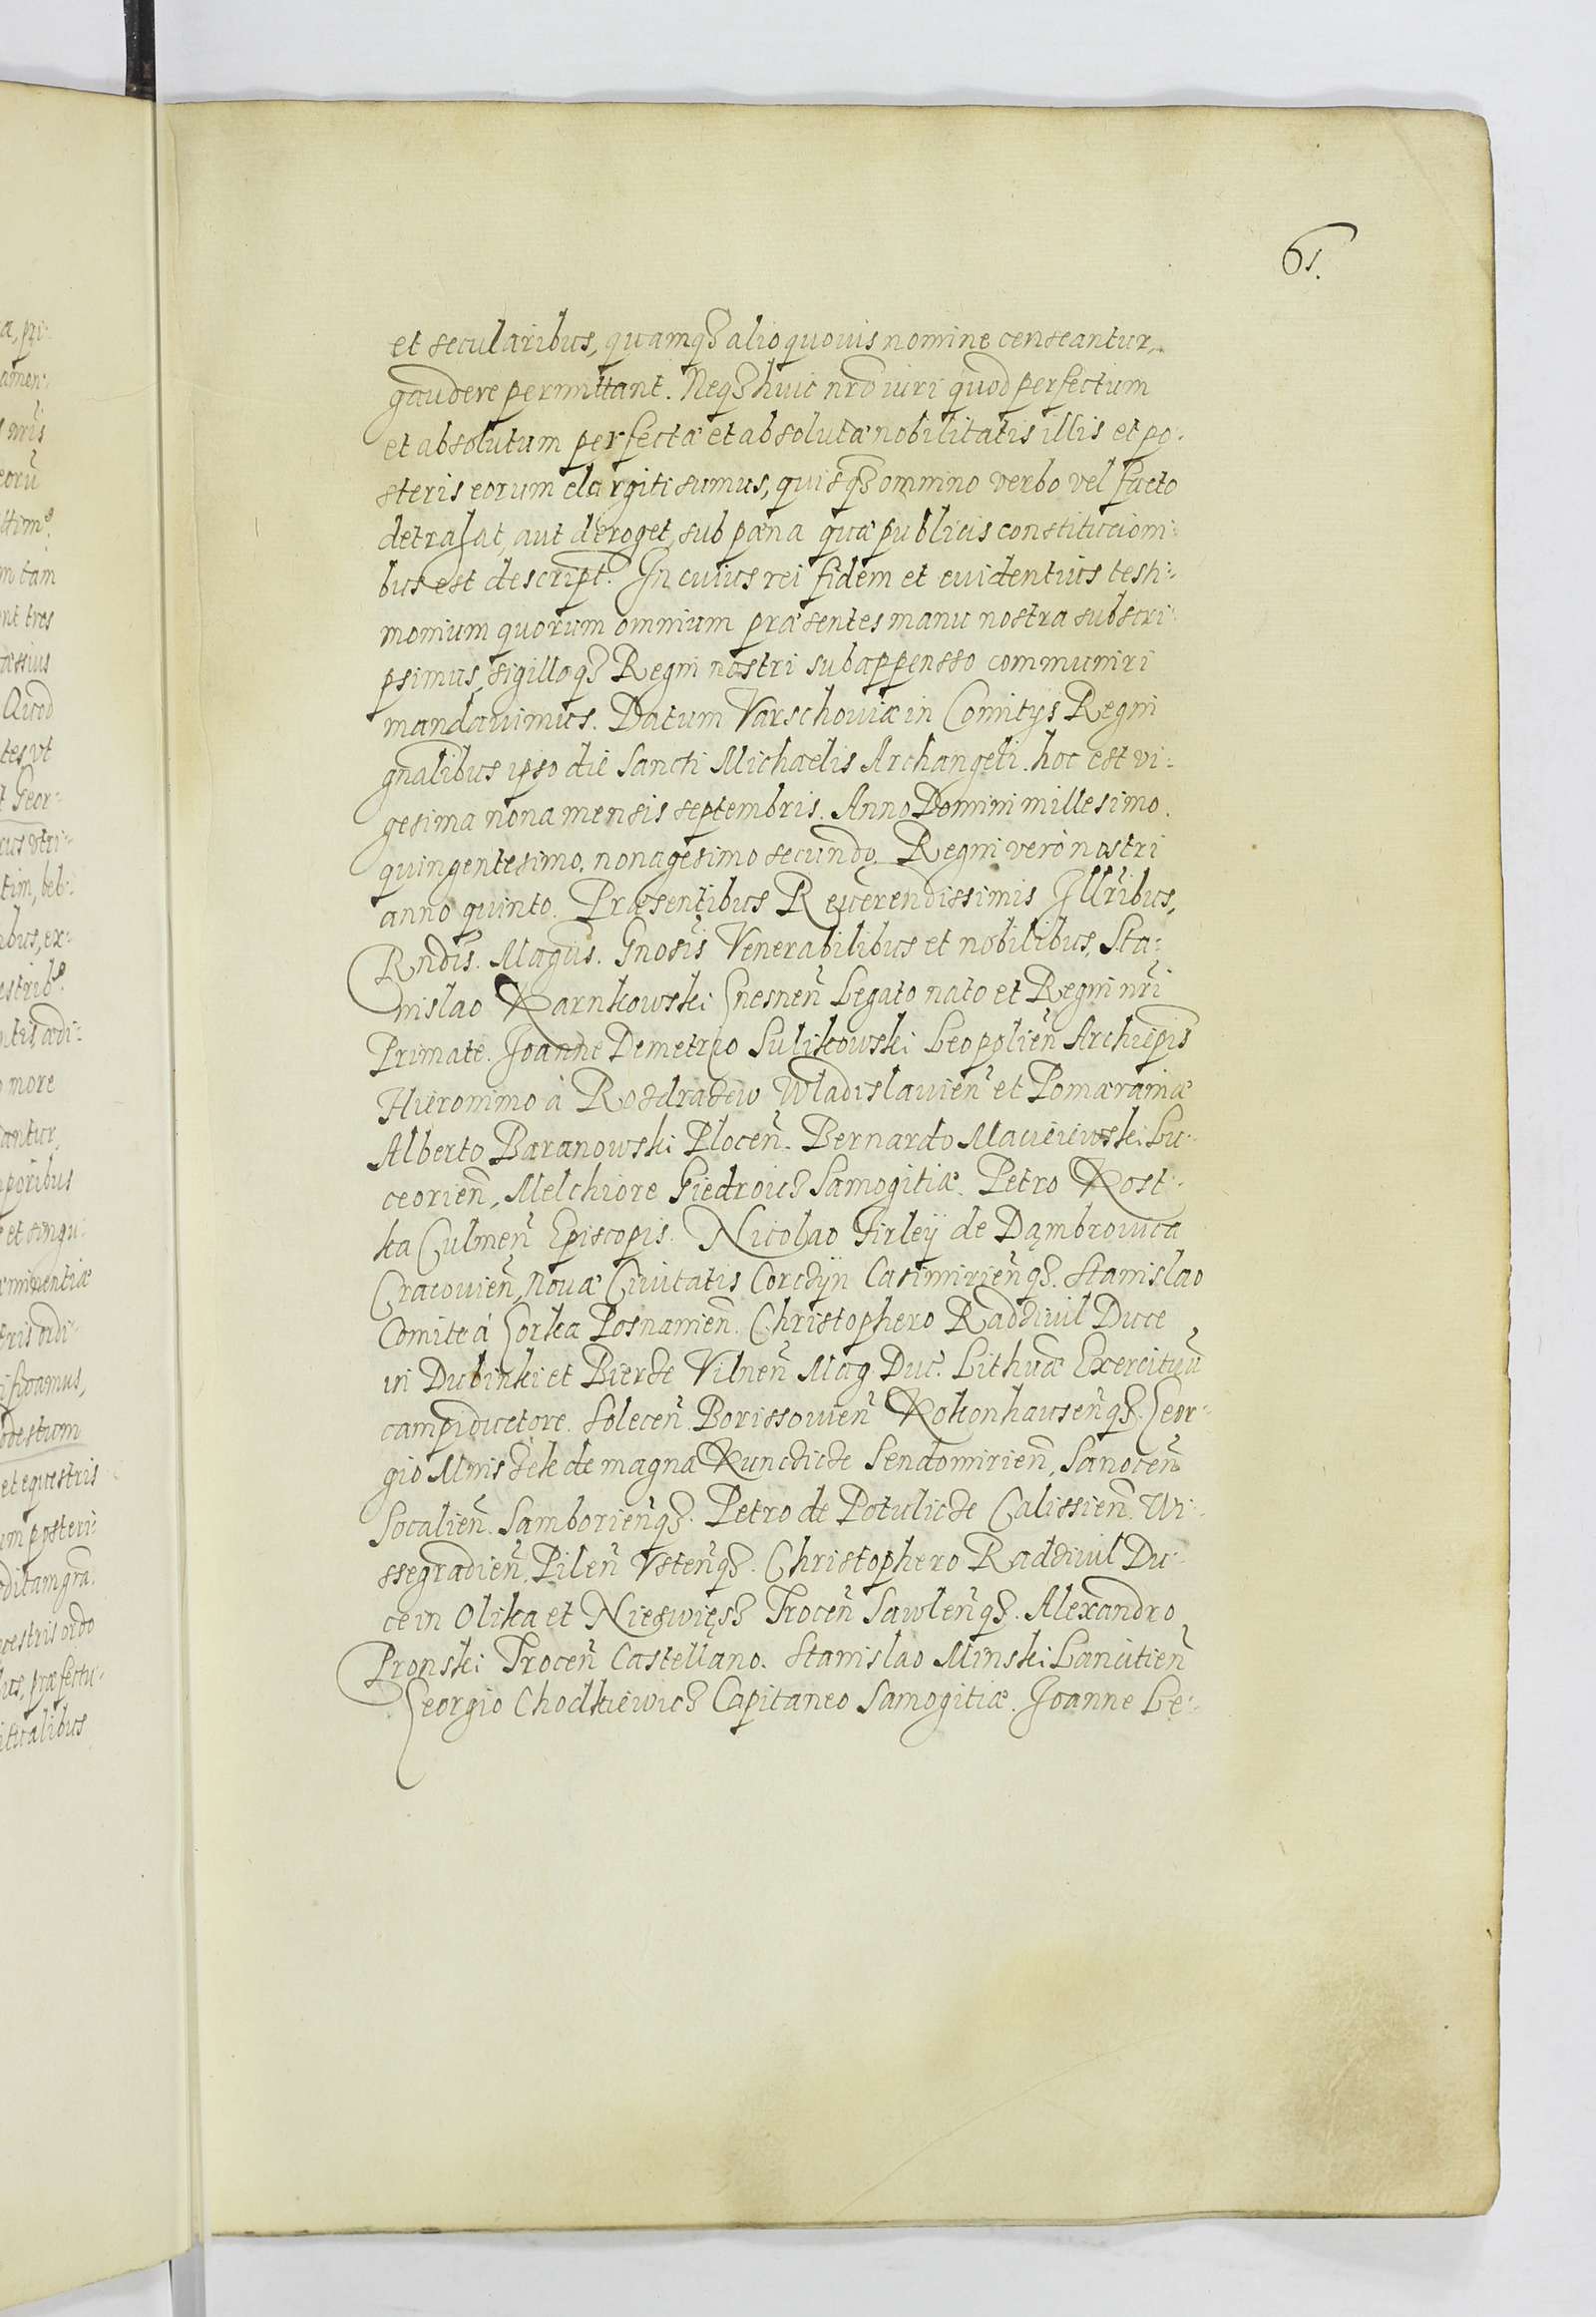 61.
et secularibus, quamqꝫ alio quovis nomine censeantur,
gaudere permittant. Neqꝫ huic nr̃o iuri quod perfectum
et absolutum perfectæ et absolutæ nobilitatis illis et po:
steris eorum elargiti sumus, quisqꝫ omnino verbo vel facto
detrahat, aut deroget, sub pæna quæ publicis constituciom:
bus est descript. In cuius rei fidem et euidentius testi:
monium quorum omnium præsentes manu nostra subscri:
psimus, sigilloqꝫ Regni nostri subappensso communiri
mandauimus. Datum Varschouiæ in Comitijs Regni
gn̄alibus ipso die Sancti Michaelis Archangeli. hoc est vi:
gesima nona mensis septembris. Anno Domini millesimo.
quingentesimo, nonagesimo secundo. Regni verò nostri
anno quinto. Præsentibus Reuerendissimis Illr̃ibus,
Rndis̃. Magc̃is. Gnosis̃ Venerabilibus et nobilibus, Sta:
nislao Karnkowski Gnesneñ Legato nato et Regni nr̃i
Primate. Joanne Demetrio Sulikowski Leopolieñ Archiepis̃
Hieronimo à Rozdrazew Wladislauieñ et Pomæraniæ
Alberto Baranowski Ploceñ. Bernardo Macieiewski Lu:
ceorieñ, Melchiore Giedroicz Samogitiæ. Petro Kost:
ka Culmeñ Episcopis. Nicolao Firleÿ de Dąmbrouica
Cracouieñ, Nouæ Ciuitatis Corczÿn Casimirieñqꝫ. Stanislao
Comite á Gorka Posnanieñ. Christophero Radziuil Duce
in Dubinki et Bierze Vilneñ Mag. Duc. Lithuæ̃ Exercituũ
campiductore. Soleceñ. Borissouieñ Kokonhauseñqꝫ. Geor:
gio Mniszek de magna Kunczicze Sendomirieñ, Sanoceñ
Socalieñ. Samborieñqꝫ. Petro de Potulicze Calissieñ. Wi:
ssegradieñ. Pileñ Vsteñqꝫ. Christophero Radziuil Du:
ce in Olika et Nieswięsꝫ Troceñ Sawleñqꝫ. Alexandro
Pronski Troceñ Castellano. Stanislao Minski Lancitieñ
Georgio Chodkiewicꝫ Capitaneo Samogitiæ. Joanne Le: